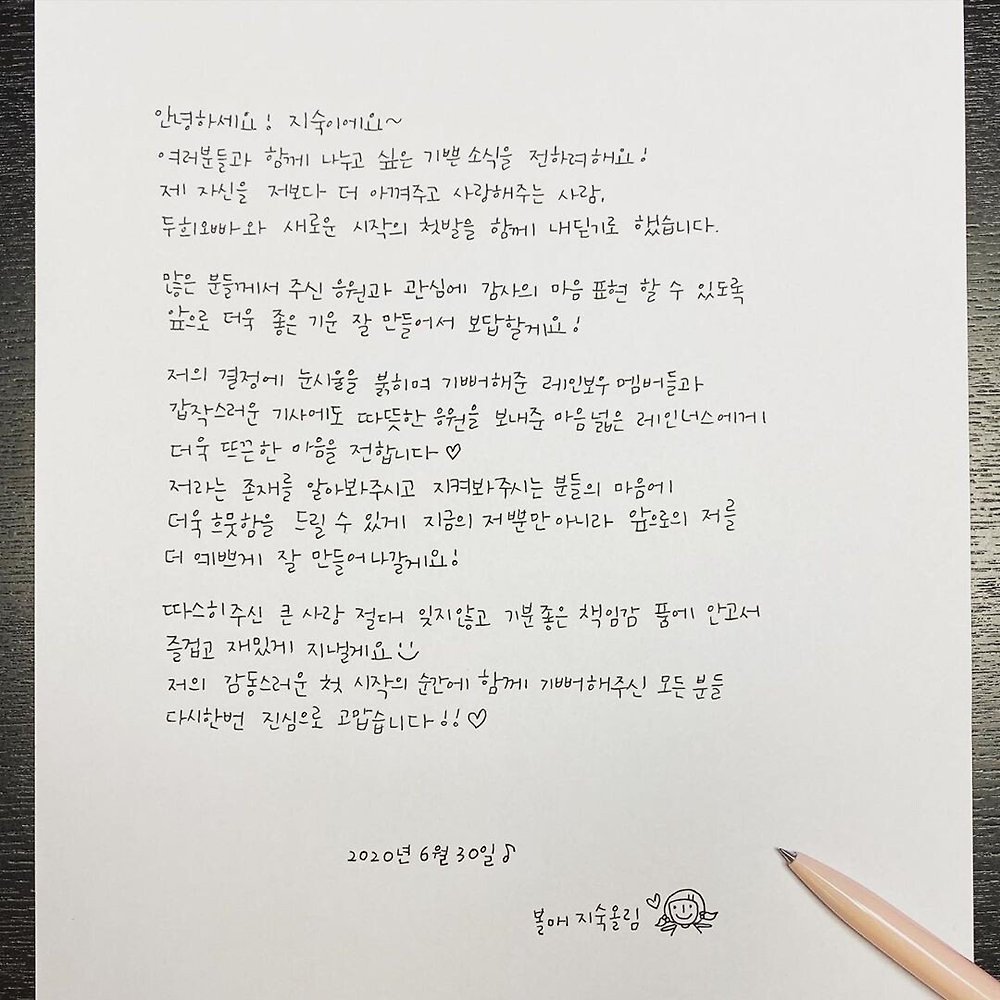 안녕하세요! 지숙이에요~
여러분들과 함께 나누고 싶은 기쁜 소식을 전하려해요!
제 자신을 저보다 더 아껴주고 사랑해주는 사람,
두희오빠와 새로운 시작의 첫발을 함께 내딛기로 했습니다.
많은 분들께서 주신 응원과 관심에 감사의 마음 표현 할 수 있도록
앞으로 더욱 좋은 기운 잘 만들어서 보답할게요!
저의 결정에 눈시울을 붉히며 기뻐해준 레인보우 멤버들과
갑작스러운 기사에도 따뜻한 응원을 보내준 마음넓은 레인너스에게
더욱 뜨끈한 마음을 전합니다♡
저라는 존재를 알아봐주시고 지켜봐주시는 분들의 마음에
더욱 흐뭇함을 드릴 수 있게 지금의 저뿐만 아니라 앞으로의 저를
더 예쁘게 잘 만들어나갈게요!
따스히주신 큰 사랑 절대 잊지않고 기분좋은 책임감 품에 안고서
즐겁고 재밌게 지낼게요
저의 감동스러운 첫 시작의 순간에 함께 기뻐해주신 모든 분들
다시한번 진심으로 고맙습니다!!♡
2020년 6월 30일♪
볼매 지숙올림